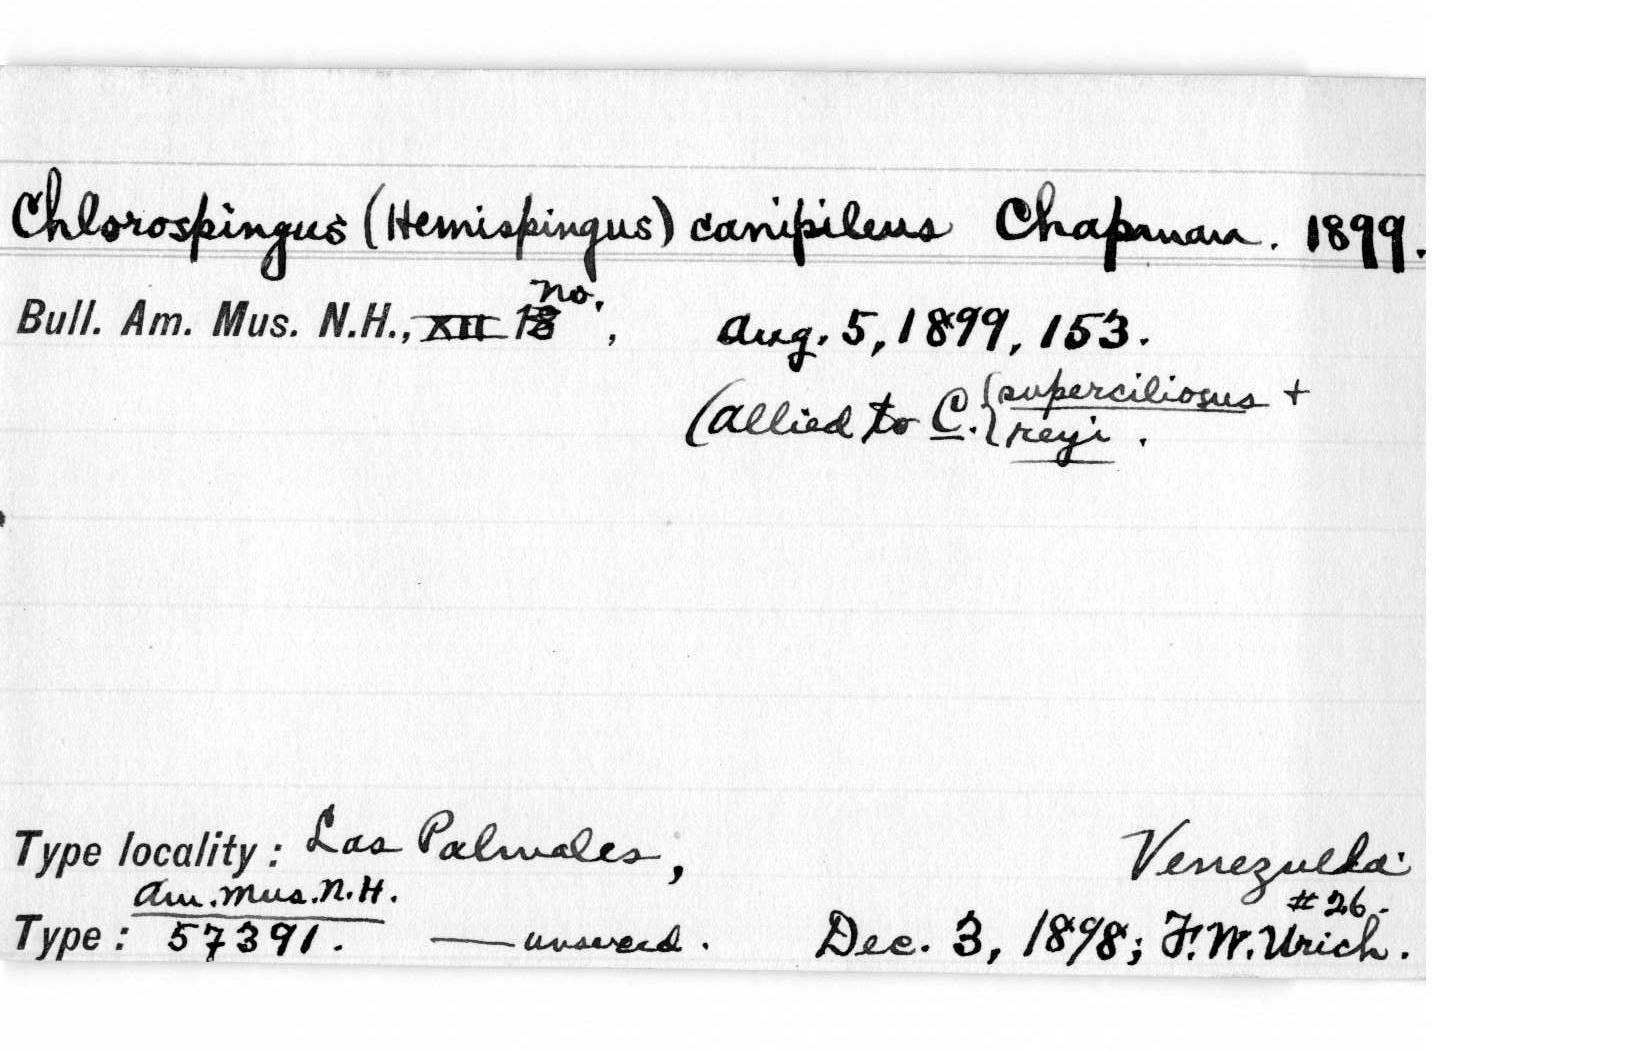 Chlorospingus (Hemispingus) canipileus Chapman. 1899.
no.
Bull. Am. Mus. N.H., XII , Aug. 5, 1899, 153.
(Allied to C. { superciliosus +
reyi .
Type locality : Las Palmales, Venezuela
Am. Mus. N.H. #26.
Type : 57391. — unsexed. Dec. 3, 1898; F.W. Urich.